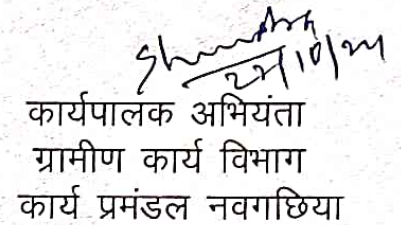 22/10/24
कार्यपालक अभियंता
ग्रामीण कार्य विभाग
कार्य प्रमंडल नवगछिया